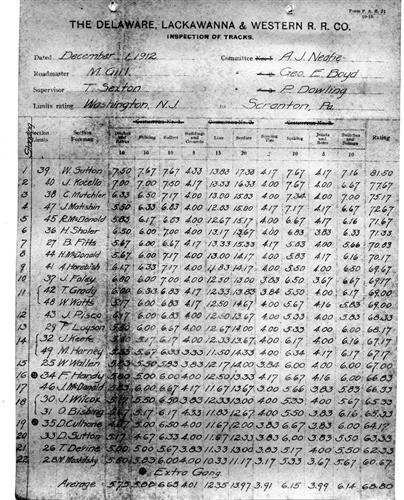 Form P. A. R. 21
THE DELAWARE, LACKAWANNA & WESTERN R. R. CO.
INSPECTION OF TRACKS.
Dated December 1, 1912 Committee A. J. Neafie
Roadmaster M. Gill Geo. E. Boyd
Supervisor T. Sexton P. Dowling
Limits rating Washington, N.J. to Scranton, Pa
Section Foreman Line Surface Rating
1 39 W. Sutton 7.50 7.67 7.67 4.33 13.83 17.33 4.17 7.67 4.17 7.16 81.50
2 40 J. Kocella 7.00 7.00 7.50 4.17 13.33 16.33 4.00 7.67 4.00 6.67 77.67
3 38 C. Mutchler 6.33 6.50 7.17 4.00 13.00 15.83 4.00 7.34 4.00 7.00 75.17
4 47 J. Matishin 5.50 6.33 6.83 4.00 12.83 15.00 4.17 7.17 4.17 6.67 72.67
5 45 R. McDonald 5.83 6.17 6.83 4.00 12.67 15.17 4.00 6.67 4.17 6.16 71.67
6 36 H. Shaler 6.50 6.00 7.00 4.00 13.17 13.67 4.00 6.83 3.83 6.33 71.33
7 27 B. Fitts 5.67 6.00 6.67 4.17 13.33 15.33 4.17 5.83 4.00 5.66 70.83
8 44 H. McDonald 5.67 6.00 7.17 4.00 13.00 14.17 4.00 5.83 4.17 6.16 70.17
9 41 6.17 6.33 7.17 4.00 11.83 14.17 4.00 5.50 4.00 6.50 69.67
10 37 J. Foley 6.00 6.00 7.00 4.00 12.50 13.00 3.83 6.50 3.67 6.67 69.17
11 42 T. Grady 6.33 6.83 4.17 12.33 13.83 3.84 5.50 4.00 6.17 69.00
48 W. Watts 5.17 6.00 6.83 4.17 12.50 14.67 4.00 5.67 4.16 5.83 69.00
12 43 J. Pisco 6.17 6.00 6.83 4.00 12.50 13.67 4.00 5.33 4.00 5.83 68.33
13 29 F. Luyson 5.50 6.00 6.67 4.00 12.67 14.00 4.00 5.33 4.00 6.00 68.17
14 32 J. Keefe 5.17 6.17 4.00 12.33 13.67 4.00 6.17 4.00 6.16 67.17
49 M. Harney 5.33 5.67 6.33 3.33 11.50 14.33 4.00 6.34 4.17 6.17 67.17
15 25 H. Wallen 5.50 5.83 3.83 12.17 14.00 3.84 6.00 4.00 6.00 67.00
16 34 F. Handy 5.00 6.00 4.00 12.50 13.33 4.17 6.67 4.16 6.00 66.83
17 46 J. McDonald 6.00 6.67 4.17 11.67 13.67 3.00 5.66 3.83 5.83 66.33
18 30 J. Wilcox 5.17 5.50 6.50 3.83 12.33 13.00 4.00 5.33 4.00 5.67 65.33
31 O. Bisbing 5.17 6.17 4.33 11.83 12.67 4.00 5.50 3.83 6.16 65.33
19 35 D. Culhane 4.67 5.00 6.50 4.00 11.67 12.00 3.83 6.67 3.83 6.00 64.17
20 33 D. Sutton 5.17 4.67 6.33 4.00 11.67 12.33 3.83 6.00 3.83 5.50 63.33
21 26 T. Devine 5.00 5.00 5.67 3.83 11.33 13.00 3.83 5.17 4.00 5.50 62.33
22 28 M. Maslitsky 5.50 5.83 6.00 4.00 10.33 11.17 3.17 5.33 3.67 5.67 60.67
Extra Gang
Average 5.75 5.80 6.63 4.01 12.35 13.97 3.91 6.15 3.99 6.14 68.80